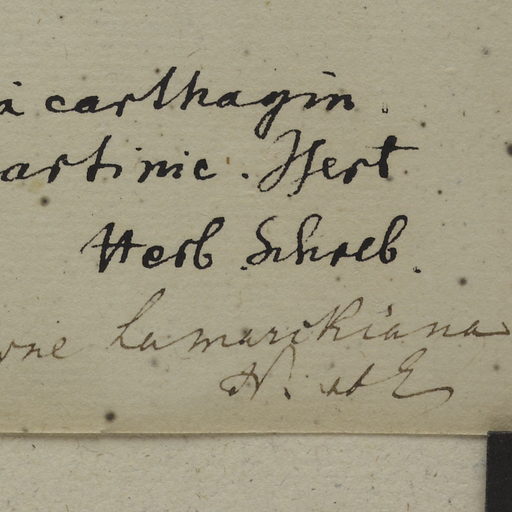 à carthagin.
artinic. Isert
Herb. Schreb.
rne Lamarckiana
N. at E